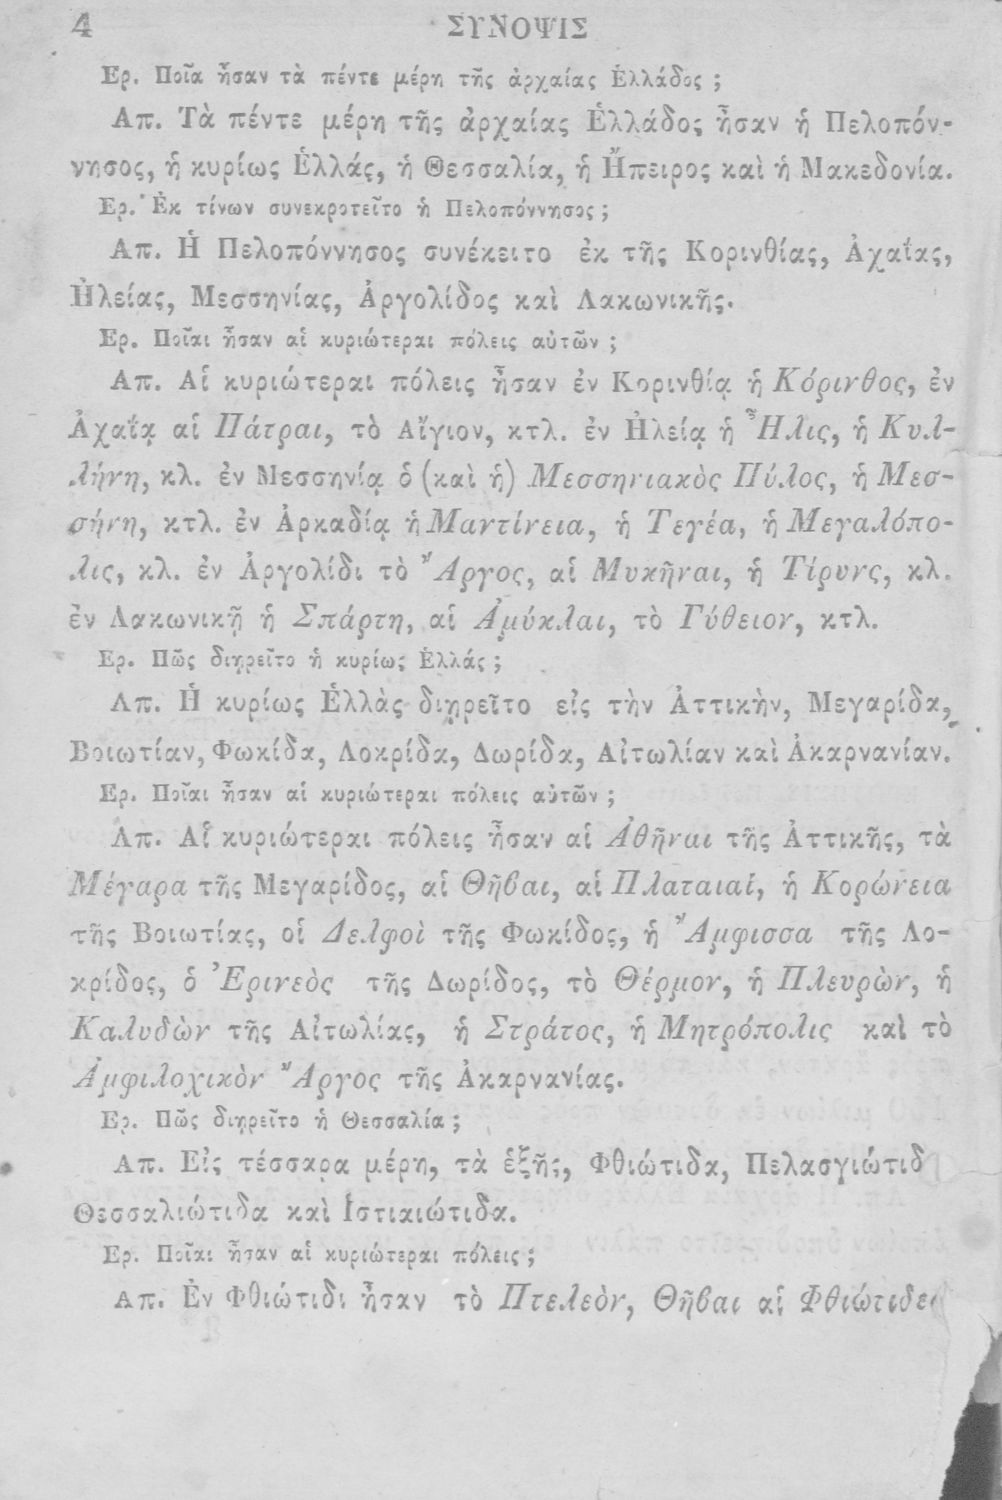 4 ΣΥΝΟΨΙΣ
Ερ. Ποῖα ἦσαν τὰ πέντε μέρη τῆς ἀρχαίας Ἑλλάδος ;
Απ. Τὰ πέντε μέρη τῆς ἀρχαίας Ἑλλάδος ἦσαν ἡ Πελοπόν-
νησος, ἡ κυρίως Ἑλλάς, ἡ Θεσσαλία, ἡ Ἤπειρος καὶ ἡ Μακεδονία.
Ερ. Ἐκ τίνων συνεκροτεῖτο ἡ Πελοπόννησος ;
Απ. Ἡ Πελοπόννησος συνέκειτο ἐκ τῆς Κορινθίας, Ἀχαΐας,
Ἠλείας, Μεσσηνίας, Ἀργολίδος καὶ Λακωνικῆς.
Ερ. Ποῖαι ἦσαν αἱ κυριώτεραι πόλεις αὐτῶν ;
Απ. Αἱ κυριώτεραι πόλεις ἦσαν ἐν Κορινθίᾳ ἡ Κόρινθος, ἐν
Ἀχαΐᾳ αἱ Πάτραι, τὸ Αἴγιον, κτλ. ἐν Ἠλείᾳ ἡ Ἦλις, ἡ Κυλ-
λήνη, κλ. ἐν Μεσσηνίᾳ ὁ (καὶ ἡ) Μεσσηνιακὸς Πύλος, ἡ Μεσ-
σήνη, κτλ. ἐν Ἀρκαδίᾳ ἡ Μαντίνεια, ἡ Τεγέα, ἡ Μεγαλόπο-
λις, κλ. ἐν Ἀργολίδι τὸ Ἄργος, αἱ Μυκῆναι, ἡ Τίρυνς, κλ.
ἐν Λακωνικῇ ἡ Σπάρτη, αἱ Ἀμύκλαι, τὸ Γύθειον, κτλ.
Ερ. Πῶς διῃρεῖτο ἡ κυρίως Ἑλλάς ;
Απ. Ἡ κυρίως Ἑλλὰς διῃρεῖτο εἰς τὴν Ἀττικὴν, Μεγαρίδα,
Βοιωτίαν, Φωκίδα, Λοκρίδα, Δωρίδα, Αἰτωλίαν καὶ Ἀκαρνανίαν.
Ερ. Ποῖαι ἦσαν αἱ κυριώτεραι πόλεις αὐτῶν ;
Απ. Αἱ κυριώτεραι πόλεις ἦσαν αἱ Ἀθῆναι τῆς Ἀττικῆς, τὰ
Μέγαρα τῆς Μεγαρίδος, αἱ Θῆβαι, αἱ Πλαταιαί, ἡ Κορώνεια
τῆς Βοιωτίας, οἱ Δελφοὶ τῆς Φωκίδος, ἡ Ἄμφισσα τῆς Λο-
κρίδος, ὁ Ἐρινεὸς τῆς Δωρίδος, τὸ Θέρμον, ἡ Πλευρὼν, ἡ
Καλυδὼν τῆς Αἰτωλίας, ἡ Στράτος, ἡ Μητρόπολις καὶ τὸ
Ἀμφιλοχικὸν Ἄργος τῆς Ἀκαρνανίας.
Ερ. Πῶς διῃρεῖτο ἡ Θεσσαλία ;
Απ. Εἰς τέσσαρα μέρη, τὰ ἑξῆς, Φθιώτιδα, Πελασγιώτιδ
Θεσσαλιώτιδα καὶ Ἱστιαιώτιδα.
Ερ. Ποῖαι ἦσαν αἱ κυριώτεραι πόλεις ;
Απ. Ἐν Φθιώτιδι ἦσαν τὸ Πτελεὸν, Θῆβαι αἱ Φθιώτιδες